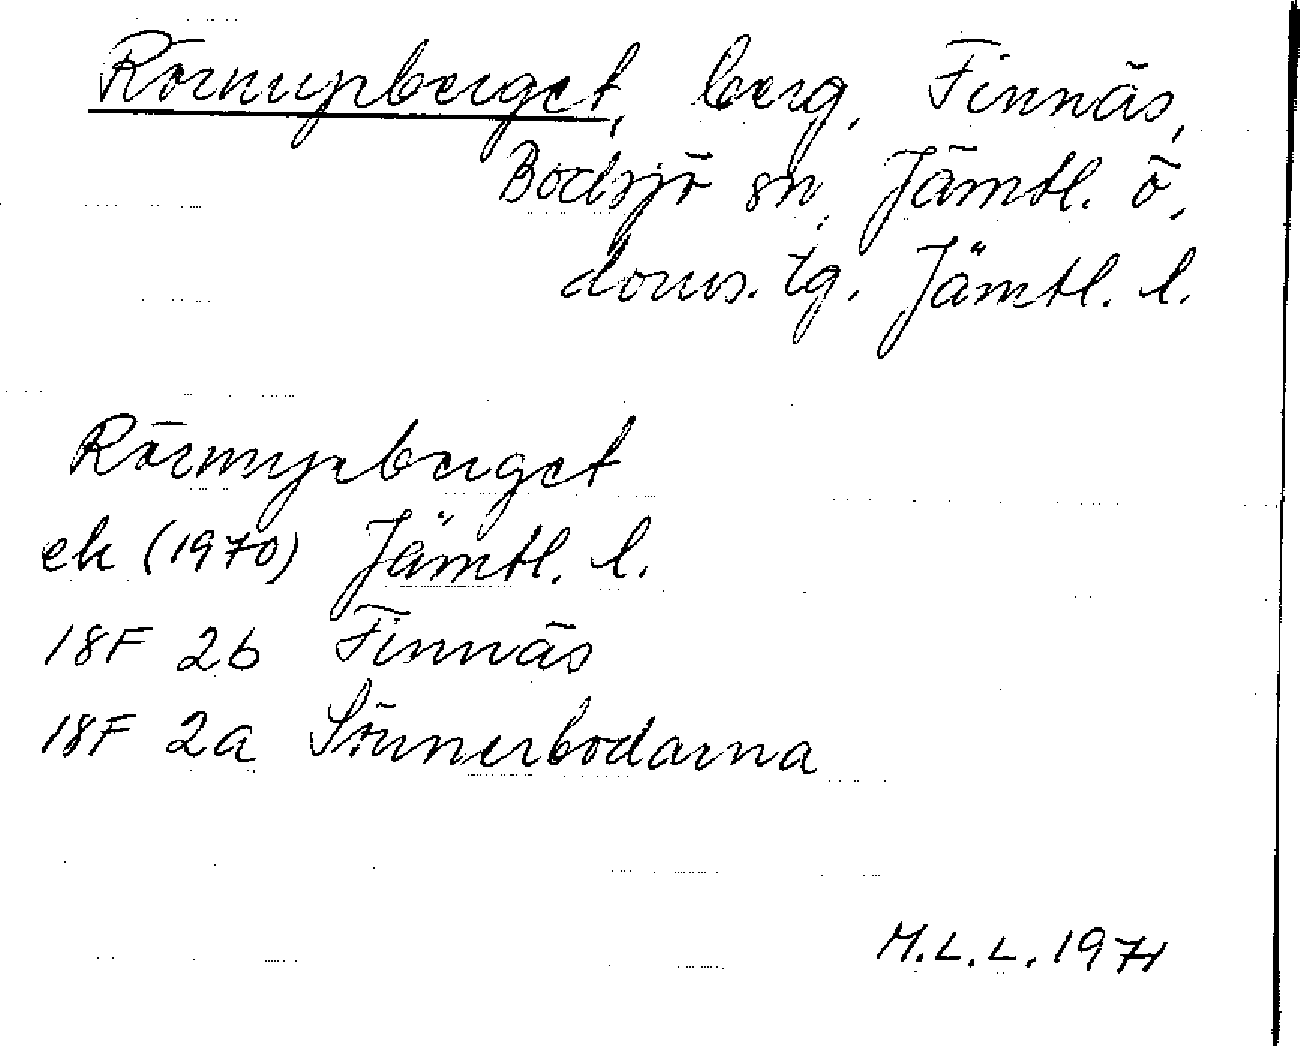 Rörmyrberget, berg, Finnäs,
Bodsjö sn, Jämtl. ö,
doms. tg. Jämtl. l.
Rörmyrberget
ek (1970) Jämtl. l.
18F 2b Finnäs
18F 2a Sörmerbodarna
M.L.L. 1971